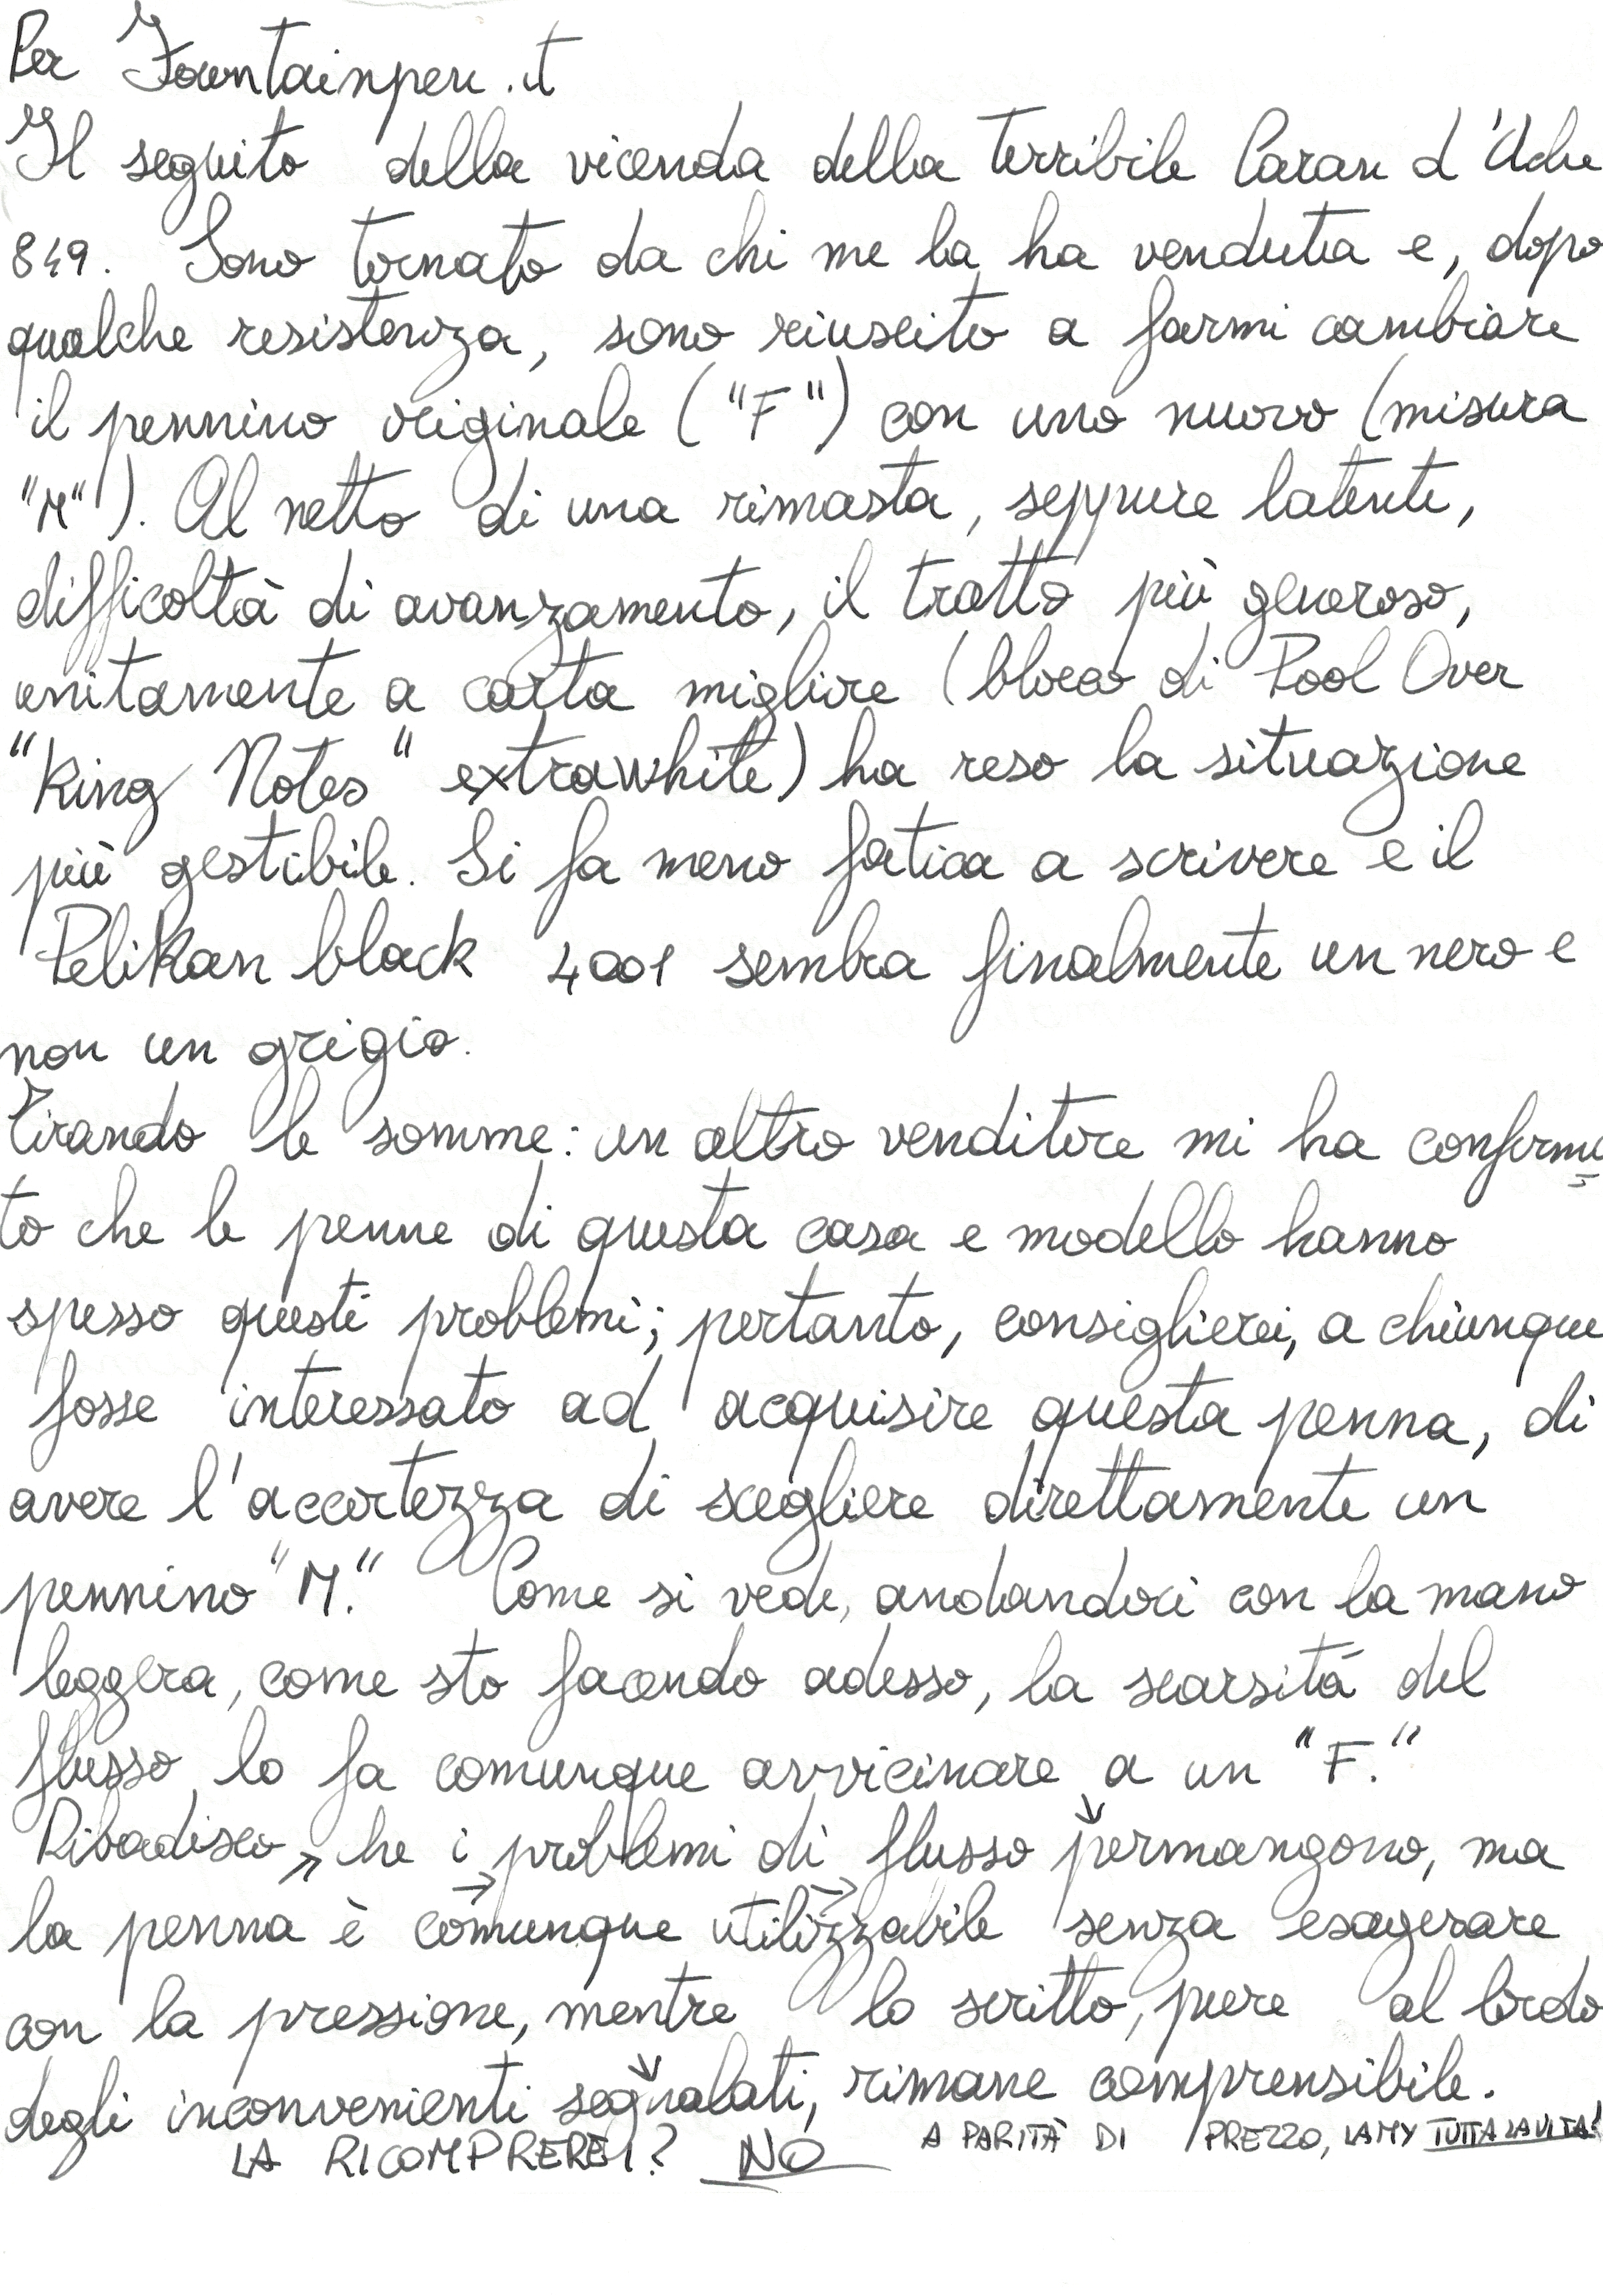 Per Fountainpen.it
Il seguito della vicenda della terribile Caran d'Ache
849. Sono tornato da chi me la ha venduta e, dopo
qualche resistenza, sono riuscito a farmi cambiare
il pennino originale ("F") con uno nuovo (misura
"M"). Al netto di una rimasta, seppure latente,
difficoltà di avanzamento, il tratto più generoso,
unitamente a carta migliore (blocco di Pool Over
"King Notes" extrawhite) ha reso la situazione
più gestibile. Si fa meno fatica a scrivere e il
Pelikan black 4001 sembra finalmente un nero e
non un grigio.
Tirando le somme: un altro venditore mi ha conferma
to che le penne di questa casa e modello hanno
spesso questi problemi; pertanto, consiglierei, a chiunque
fosse interessato ad acquisire questa penna, di
avere l'accortezza di scegliere direttamente un
pennino "M." Come si vede, andandoci con la mano
leggera, come sto facendo adesso, la scarsità del
flusso lo fa comunque avvicinare a un "F."
Ribadisco che i problemi di flusso permangono, ma
la penna è comunque utilizzabile senza esagerare
con la pressione, mentre lo scritto, pure al lordo
degli inconvenienti segnalati, rimane comprensibile.
LA RICOMPREREI? NO A PARITÀ DI PREZZO, LAMY TUTTA LA VITA!